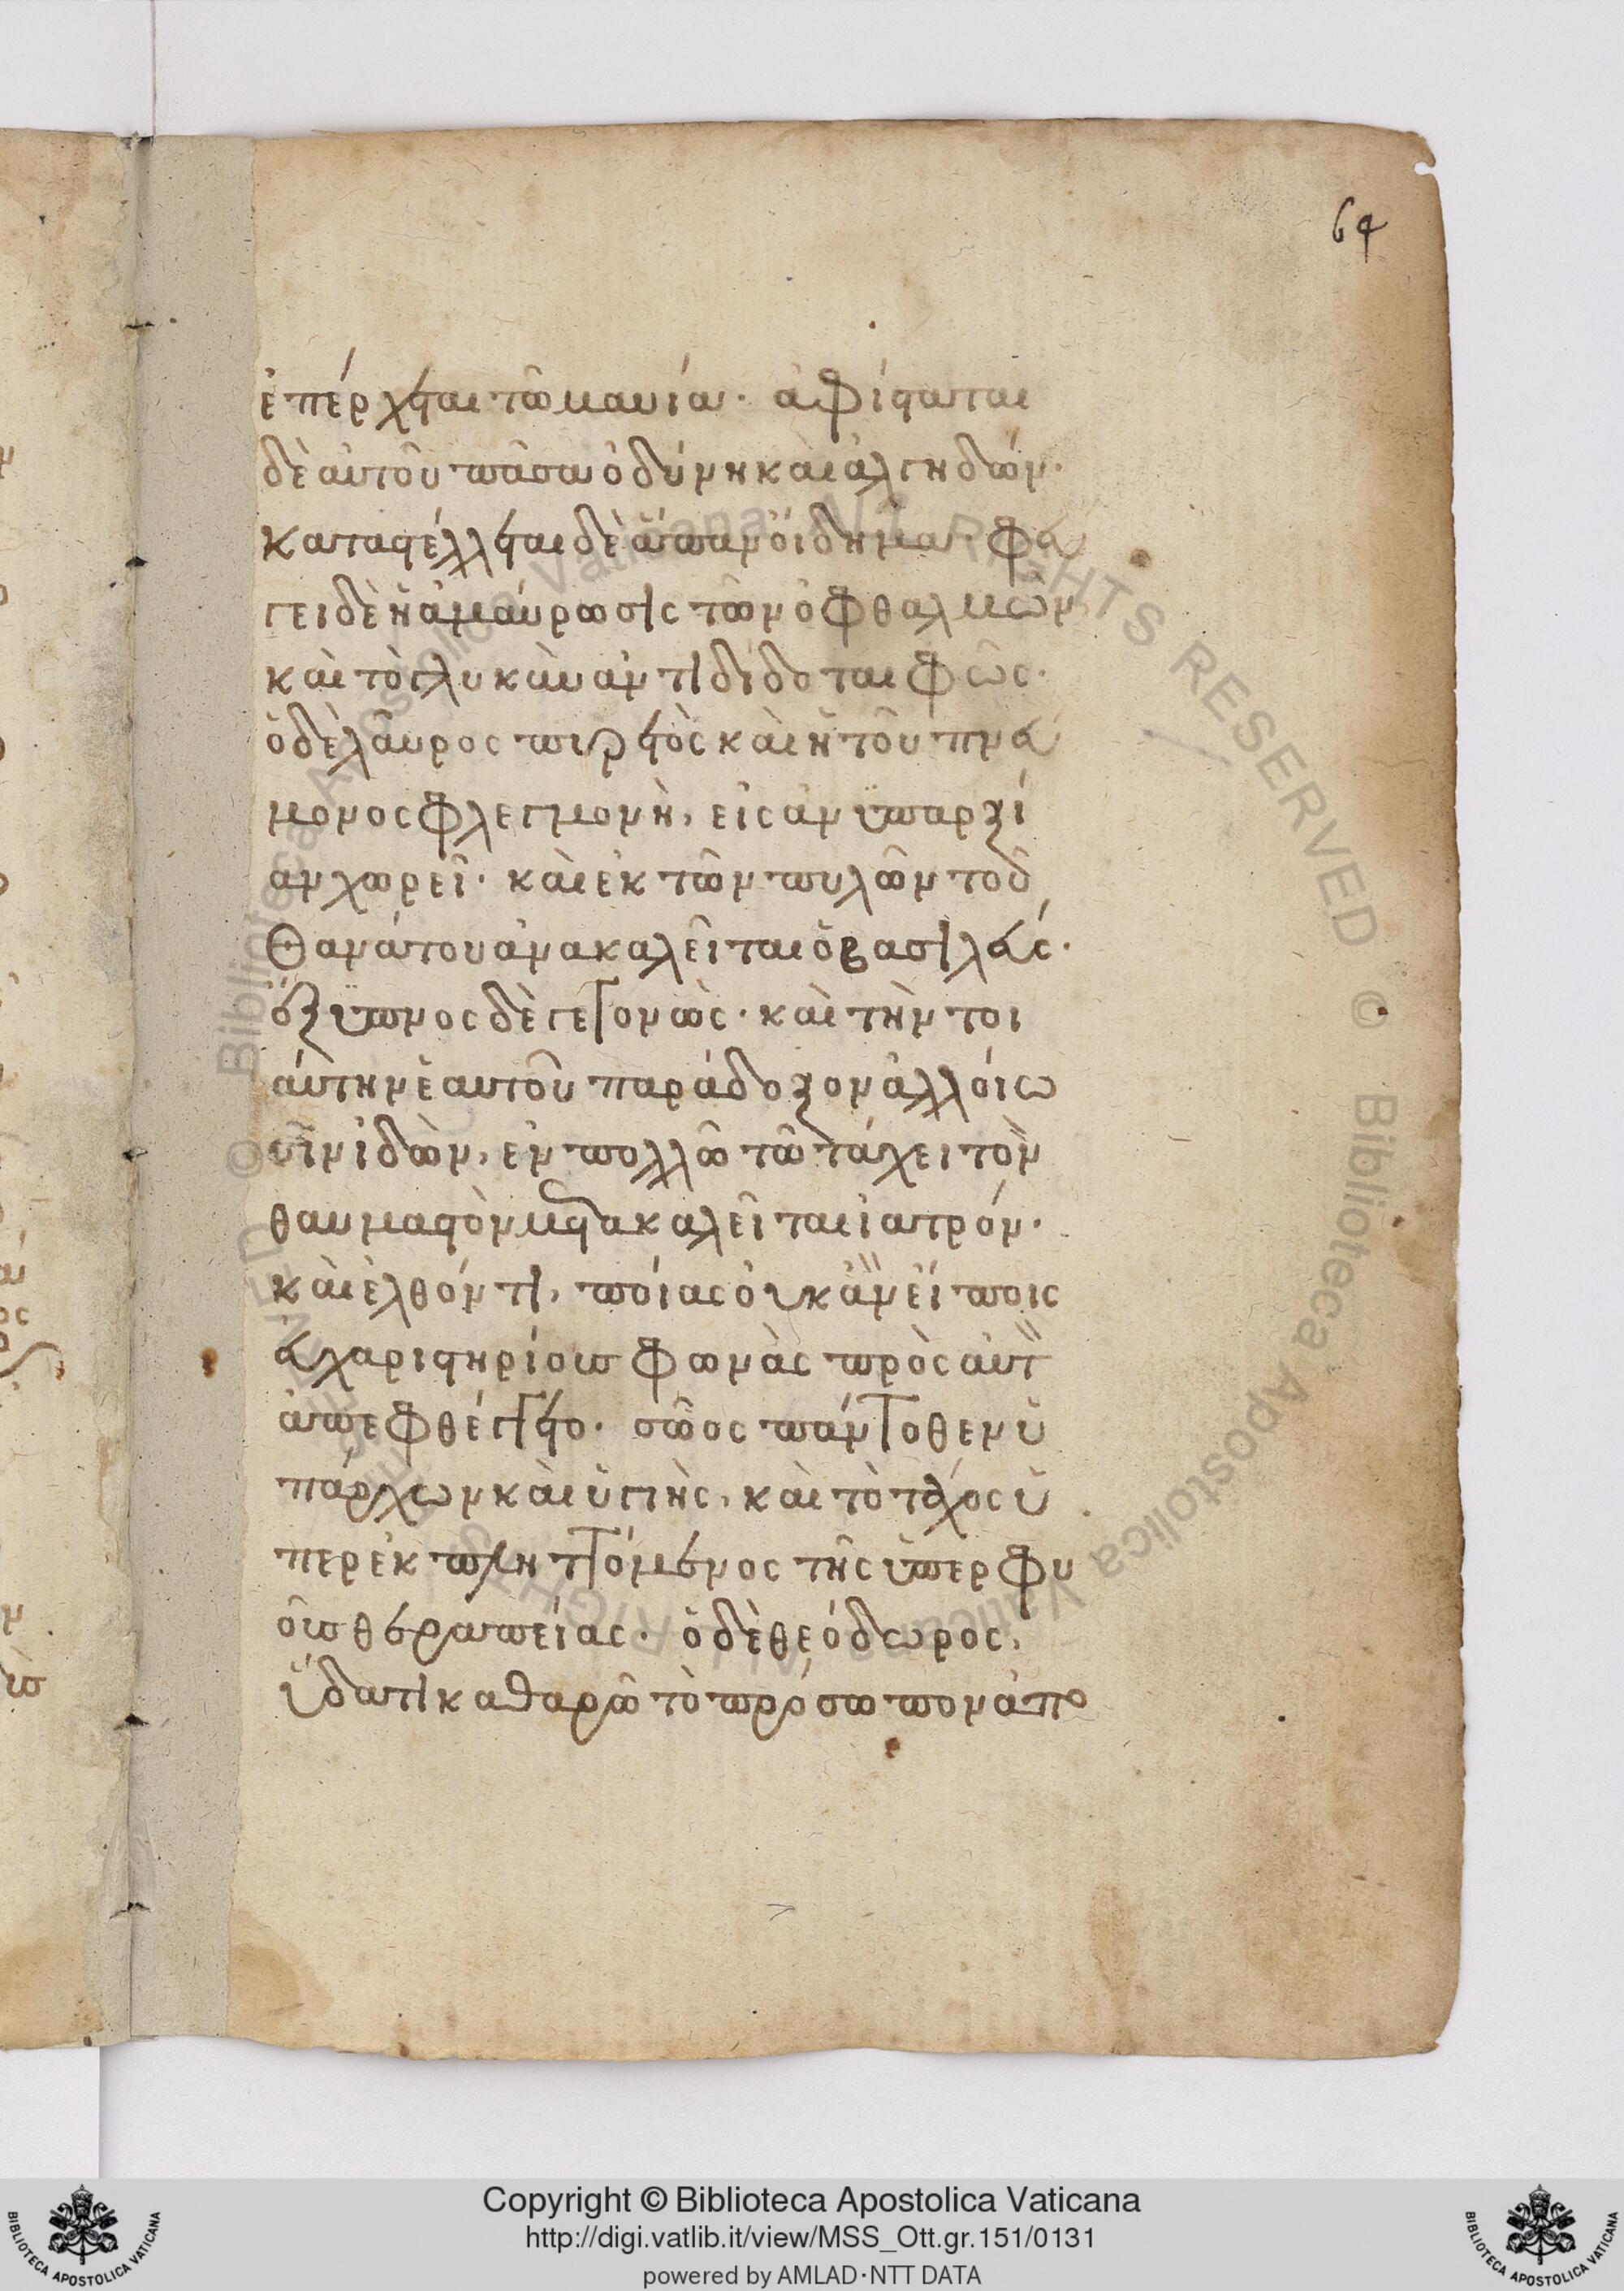 64
ἐπέρχεται τῶ μανία· ἀφίσταται
δὲ αὐτοῦ πᾶσα ὀδύνη καὶ ἀλγηδών·
καταστέλλεται δὲ ἅπαν οἴδημα· φεύ
γει δὲ ἡ ἀμαύρωσις τῶν ὀφθαλμῶν
καὶ τὸ γλυκὺ ἀντιδίδοται φῶς·
ὁ δὲ λαῦρος πυρετὸς καὶ ἡ τοῦ πνεύ
μονος φλεγμονὴ, εἰς ἀνυπαρξί
αν χωρεῖ· καὶ ἐκ τῶν πυλῶν τοῦ
θανάτου ἀνακαλεῖται ὁ βασιλεύς·
ἔξυπνος δὲ γεγονὼς· καὶ τὴν τοι
αύτην ἑαυτοῦ παράδοξον ἀλλοίω
σιν ἰδὼν, ἐν πολλῶ τῶ τάχει τὸν
θαυμαστὸν μετακαλεῖται ἰατρόν·
καὶ ἐλθόντι, ποίας οὐκ ἂν εἴποις
εὐχαριστηρίους φωνὰς πρὸς αὐτὸν
ἀπεφθέγγετο· σῶος πάντοθεν ὑ
πάρχων καὶ ὑγιὴς, καὶ τὸ τάχος ὑ
περεκπληττόμενος τῆς ὑπερφυ
οῦς θεραπείας· ὁ δὲ θεόδωρος,
ὕδατι καθαρῶ τὸ πρόσωπον ἀπο
Copyright © Biblioteca Apostolica Vaticana
http://digi.vatlib.it/view/MSS_Ott.gr.151/0131
powered by AMLAD·NTT DATA
BIBLIOTECA APOSTOLICA VATICANA
BIBLIOTECA APOSTOLICA VATICANA